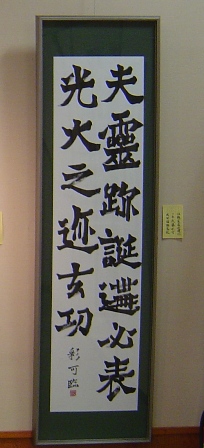 夫靈跡誕遘必表
光大之迹玄功
彩可臨